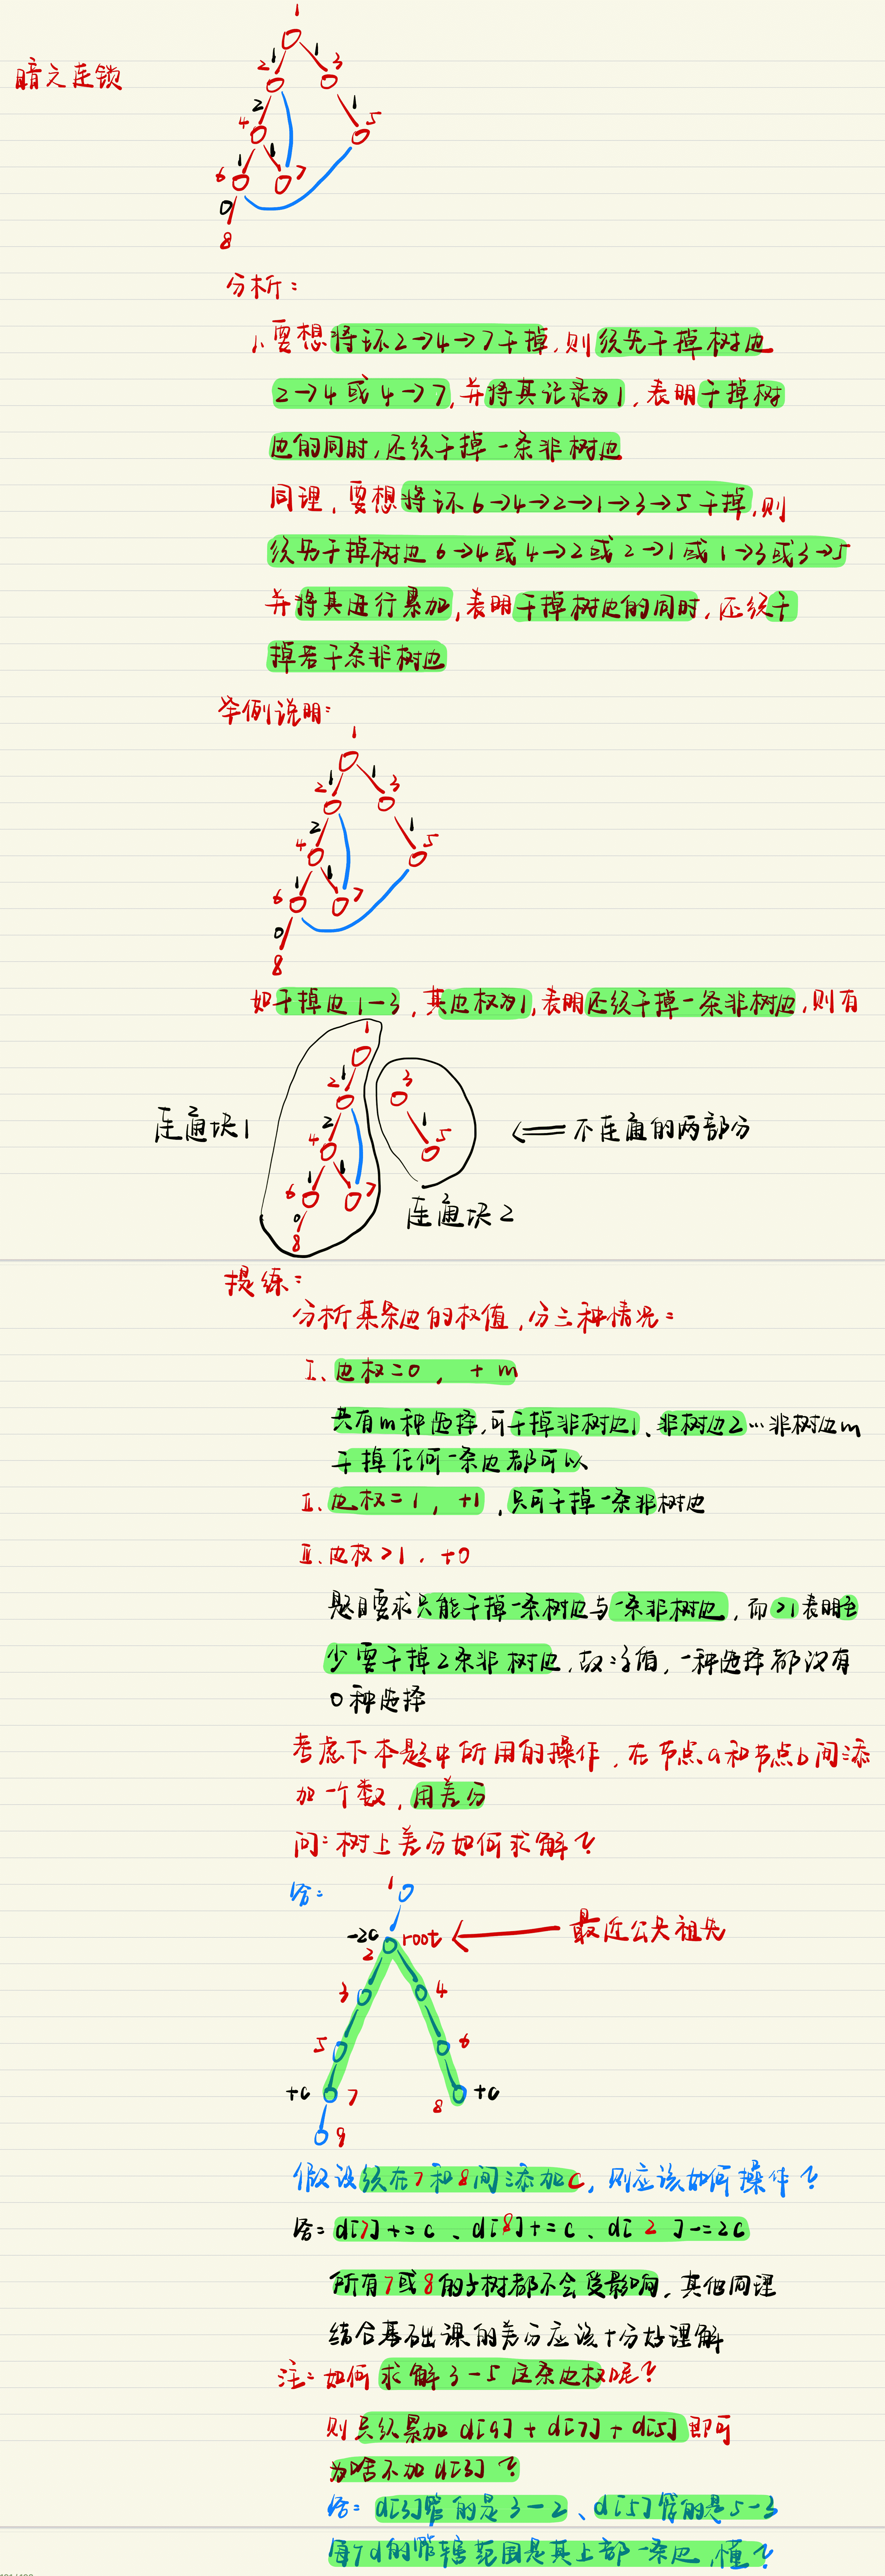 暗之连锁
1
1 1
2 3
2 1
4 5
1 1
6 7
0
8
分析：
1、要想将环2→4→7干掉,则须先干掉树边
2→4或4→7,并将其记录为1,表明干掉树
边的同时,还须干掉一条非树边
同理,要想将环6→4→2→1→3→5干掉,则
须先干掉树边6→4或4→2或2→1或1→3或3→5
并将其进行累加,表明干掉树边的同时,还须干
掉若干条非树边
举例说明：
1
1 1
2 3
2 1
4 5
1 1
6 7
0
8
如干掉边1—3,其边权为1,表明还须干掉一条非树边,则有
1
1
2 3
2 1
4 5
1 1
6 7
0
8
连通块1
连通块2
不连通的两部分
提练：
分析某条边的权值,分三种情况：
I、边权=0, +m
共有m种选择,可干掉非树边1、非树边2…非树边m
干掉任何一条边都可以
II、边权=1, +1,只可干掉一条非树边
III、边权>1, +0
题目要求只能干掉一条树边与一条非树边,而>1表明至
少要干掉2条非树边,故方案,一种选择都没有
0种选择
考虑下本题中所用的操作,在节点a和节点b间添
加一个数,用差分
问：树上差分如何求解？
答：
1
-2c
root
最近公共祖先
2
3 4
5 6
+c 7
8 +c
9
假设须在7和8间添加c,则应该如何操作？
答：d[7]+=c、d[8]+=c、d[2]-=2c
所有7或8的子树都不会受影响,其他同理
结合基础课的差分应该十分好理解
注：如何求解3-5这条边权呢？
则只须累加d[9]+d[7]+d[5]即可
为啥不加d[3]？
答：d[3]管的是3-2、d[5]管的是5-3
每个d的管辖范围是其上部一条边,懂？